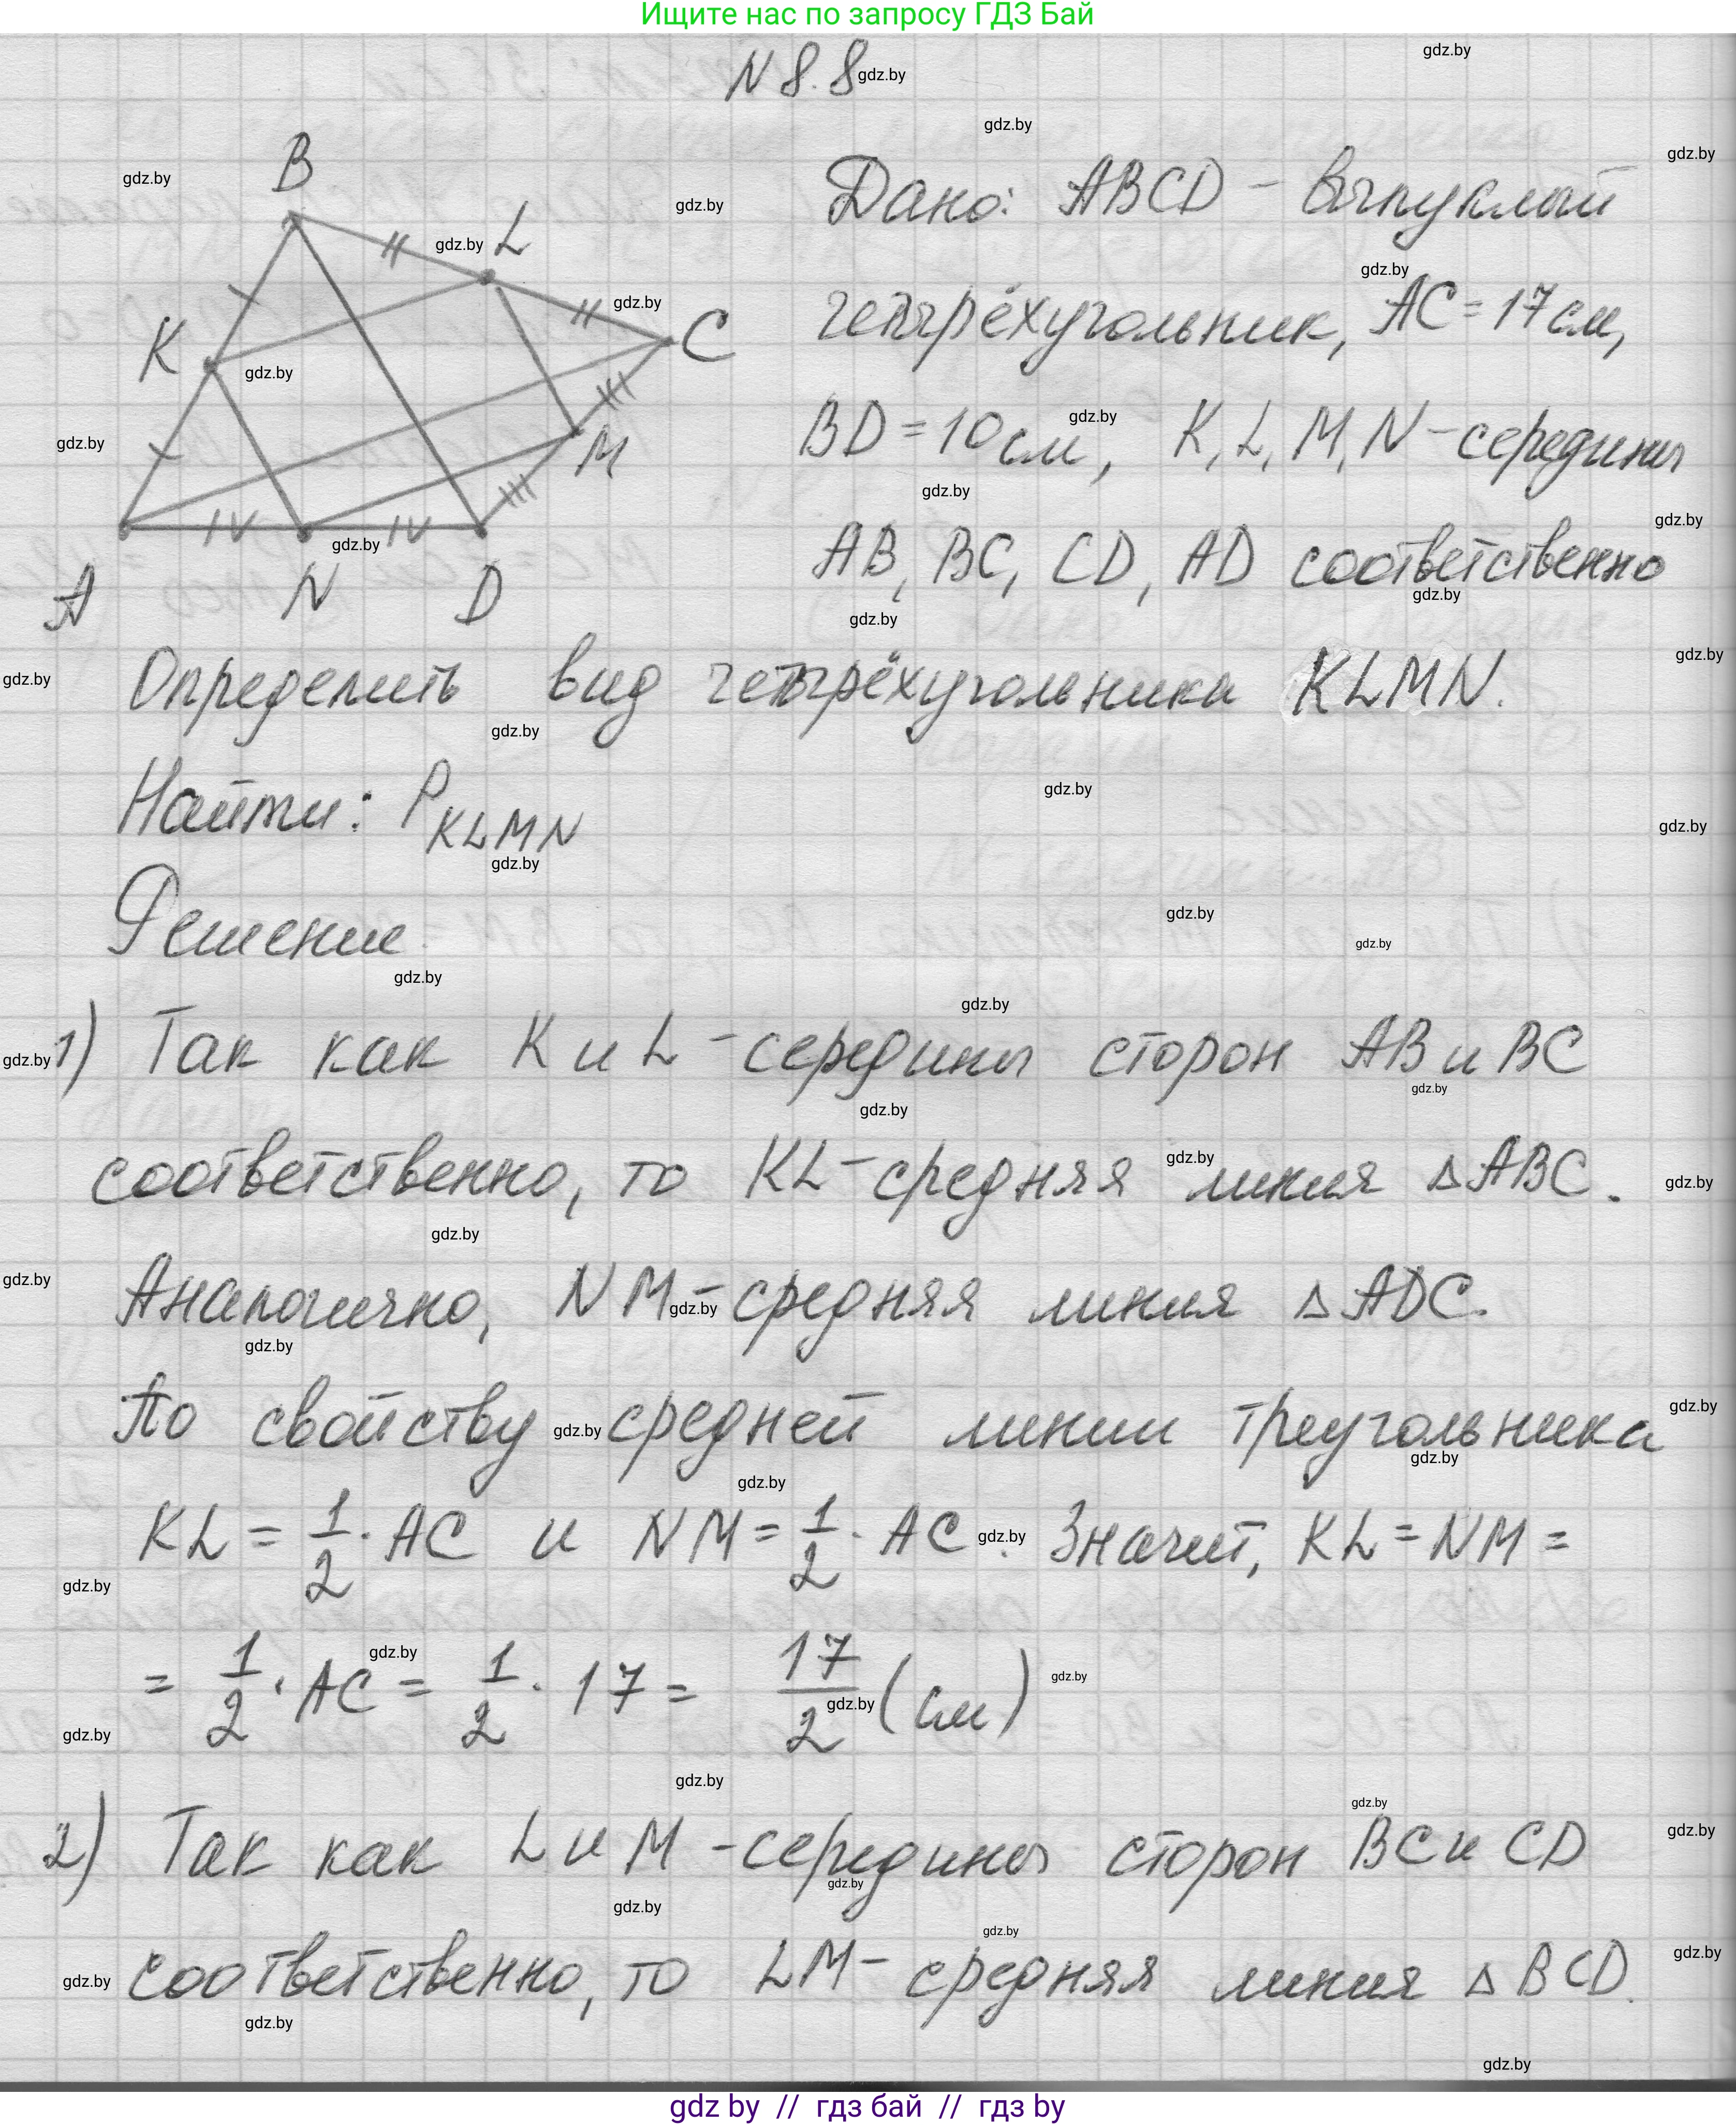 Ищите нас по запросу ГДЗ Бай
N 8.8
B
L
K
C
M
A N D
Дано: ABCD - выпуклый
четырёхугольник, AC = 17 см,
BD = 10 см, K, L, M, N - середины
AB, BC, CD, AD соответственно
Определить вид четырёхугольника KLMN.
Найти: P KLMN
Решение
1) Так как K и L - середины сторон AB и BC
соответственно, то KL - средняя линия △ABC.
Аналогично, NM - средняя линия △ADC.
По свойству средней линии треугольника
KL = 1/2 · AC и NM = 1/2 · AC. Значит, KL = NM =
= 1/2 · AC = 1/2 · 17 = 17/2 (см)
2) Так как L и M - середины сторон BC и CD
соответственно, то LM - средняя линия △BCD.
gdz by // гдз бай // гдз by